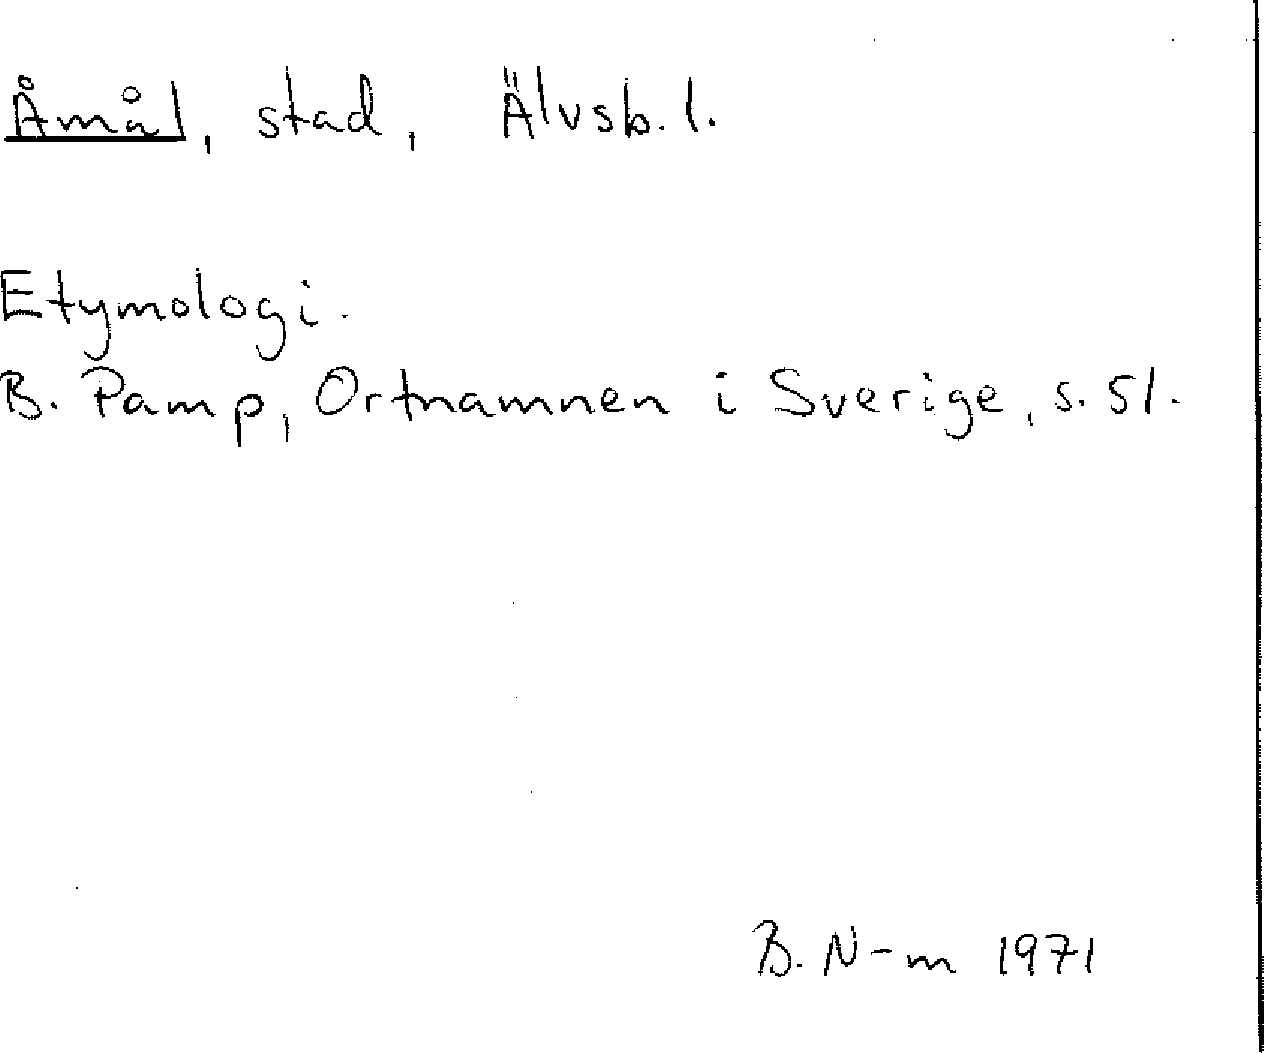 Åmål, stad, Älvsb. l.
Etymologi.
B. Pamp, Ortnamnen i Sverige, s. 51.
B. N-m 1971